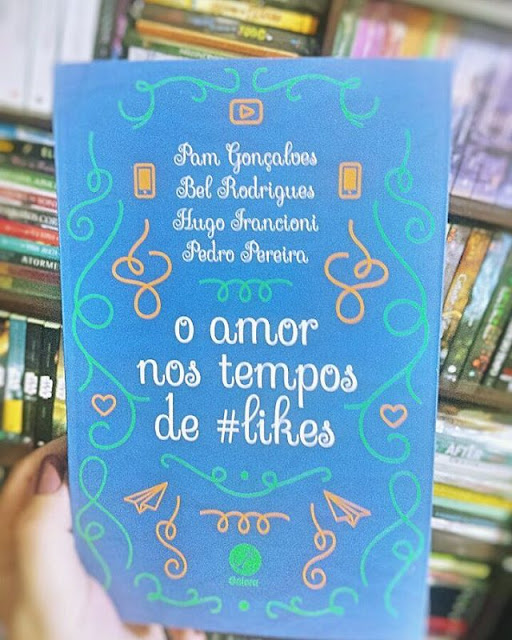 Pam Gonçalves
Bel Rodrigues
Hugo Francioni
Pedro Pereira
o amor
nos tempos
de #likes
Galera